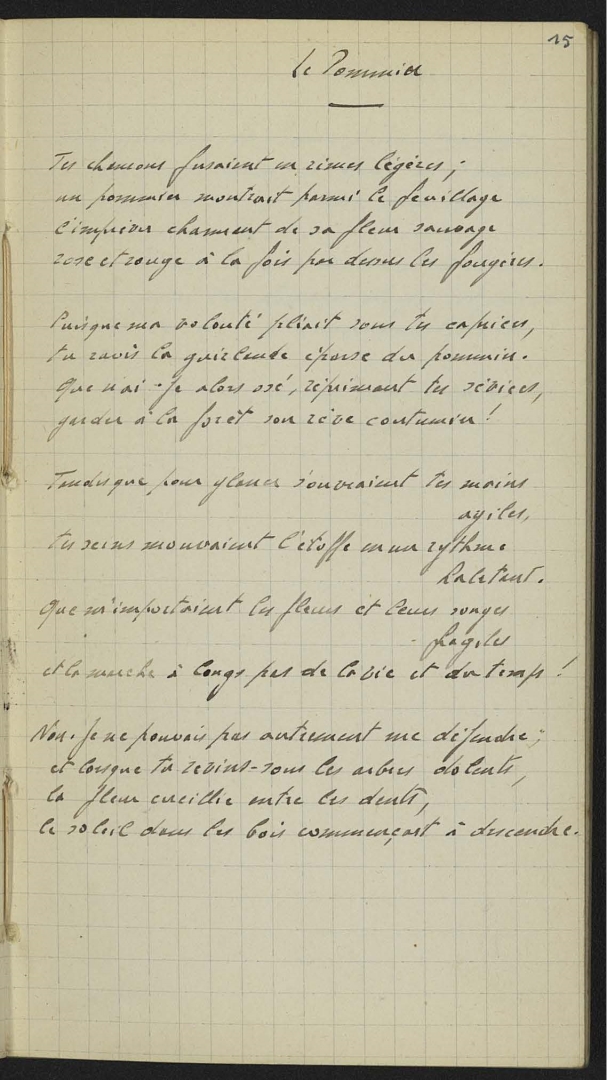 15
Le Pommier
Tes chansons fusaient en rimes légères ;
un pommier montrait parmi le feuillage
l'imprévu charmant de sa fleur sauvage
rose et rouge à la fois par dessus les fougères.
Puisque ma volonté pliait sous tes caprices,
tu ravis la guirlande éparse du pommier.
Que n'ai-je alors osé, réprimant tes sévices,
garder à la forêt son rêve coutumier !
Tandis que pour glaner s'ouvraient tes mains
agiles,
tes seins mouvaient l'étoffe en un rythme
haletant.
Que m'importaient les fleurs et leurs songes
fragiles
et la marche à longs pas de la vie et du temps !
Non. Je ne pouvais pas autrement me défendre ;
et lorsque tu revins sous les arbres dolents,
la fleur cueillie entre les dents,
le soleil dans les bois commençait à descendre.